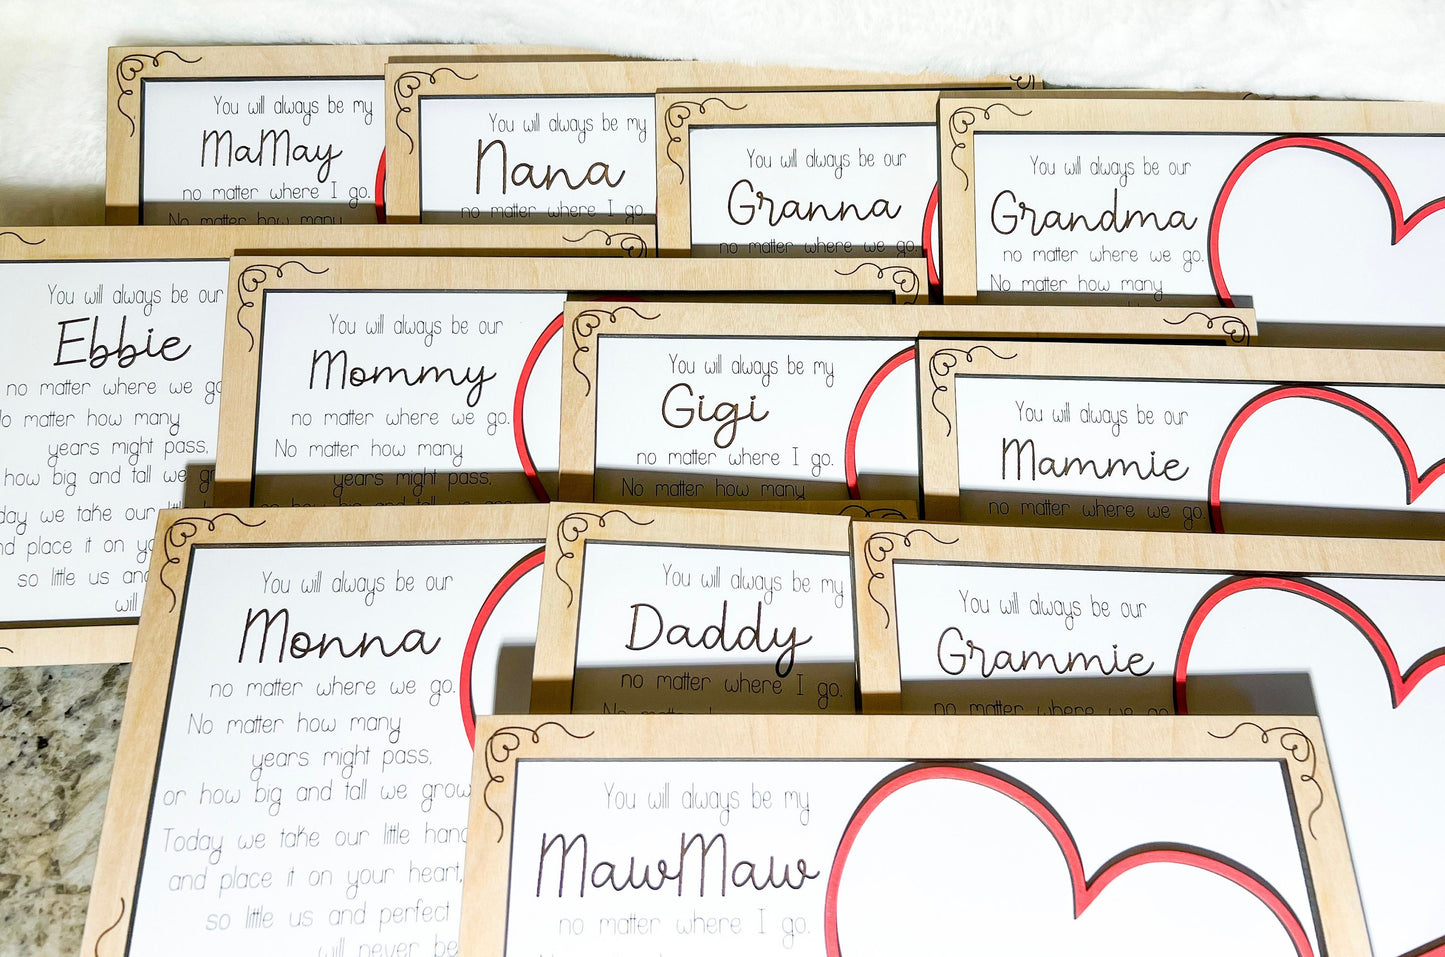 You will always be my
MaMay
no matter where I go.
No matter how many
You will always be my
Nana
no matter where I go.
You will always be our
Granna
no matter where we go.
You will always be our
Grandma
no matter where we go.
No matter how many
You will always be our
Ebbie
no matter where we go
No matter how many
years might pass,
how big and tall we gr
day we take our litt
nd place it on yo
so little us and
will
You will always be our
Mommy
no matter where we go.
No matter how many
years might pass,
or how big and tall we grow
You will always be my
Gigi
no matter where I go.
No matter how many
You will always be our
Mammie
no matter where we go.
You will always be our
Monna
no matter where we go.
No matter how many
years might pass,
or how big and tall we grow
Today we take our little hand
and place it on your heart,
so little us and perfect
will never be
You will always be my
Daddy
no matter where I go.
No matter how many
You will always be our
Grammie
no matter where we go
You will always be my
MawMaw
no matter where I go.